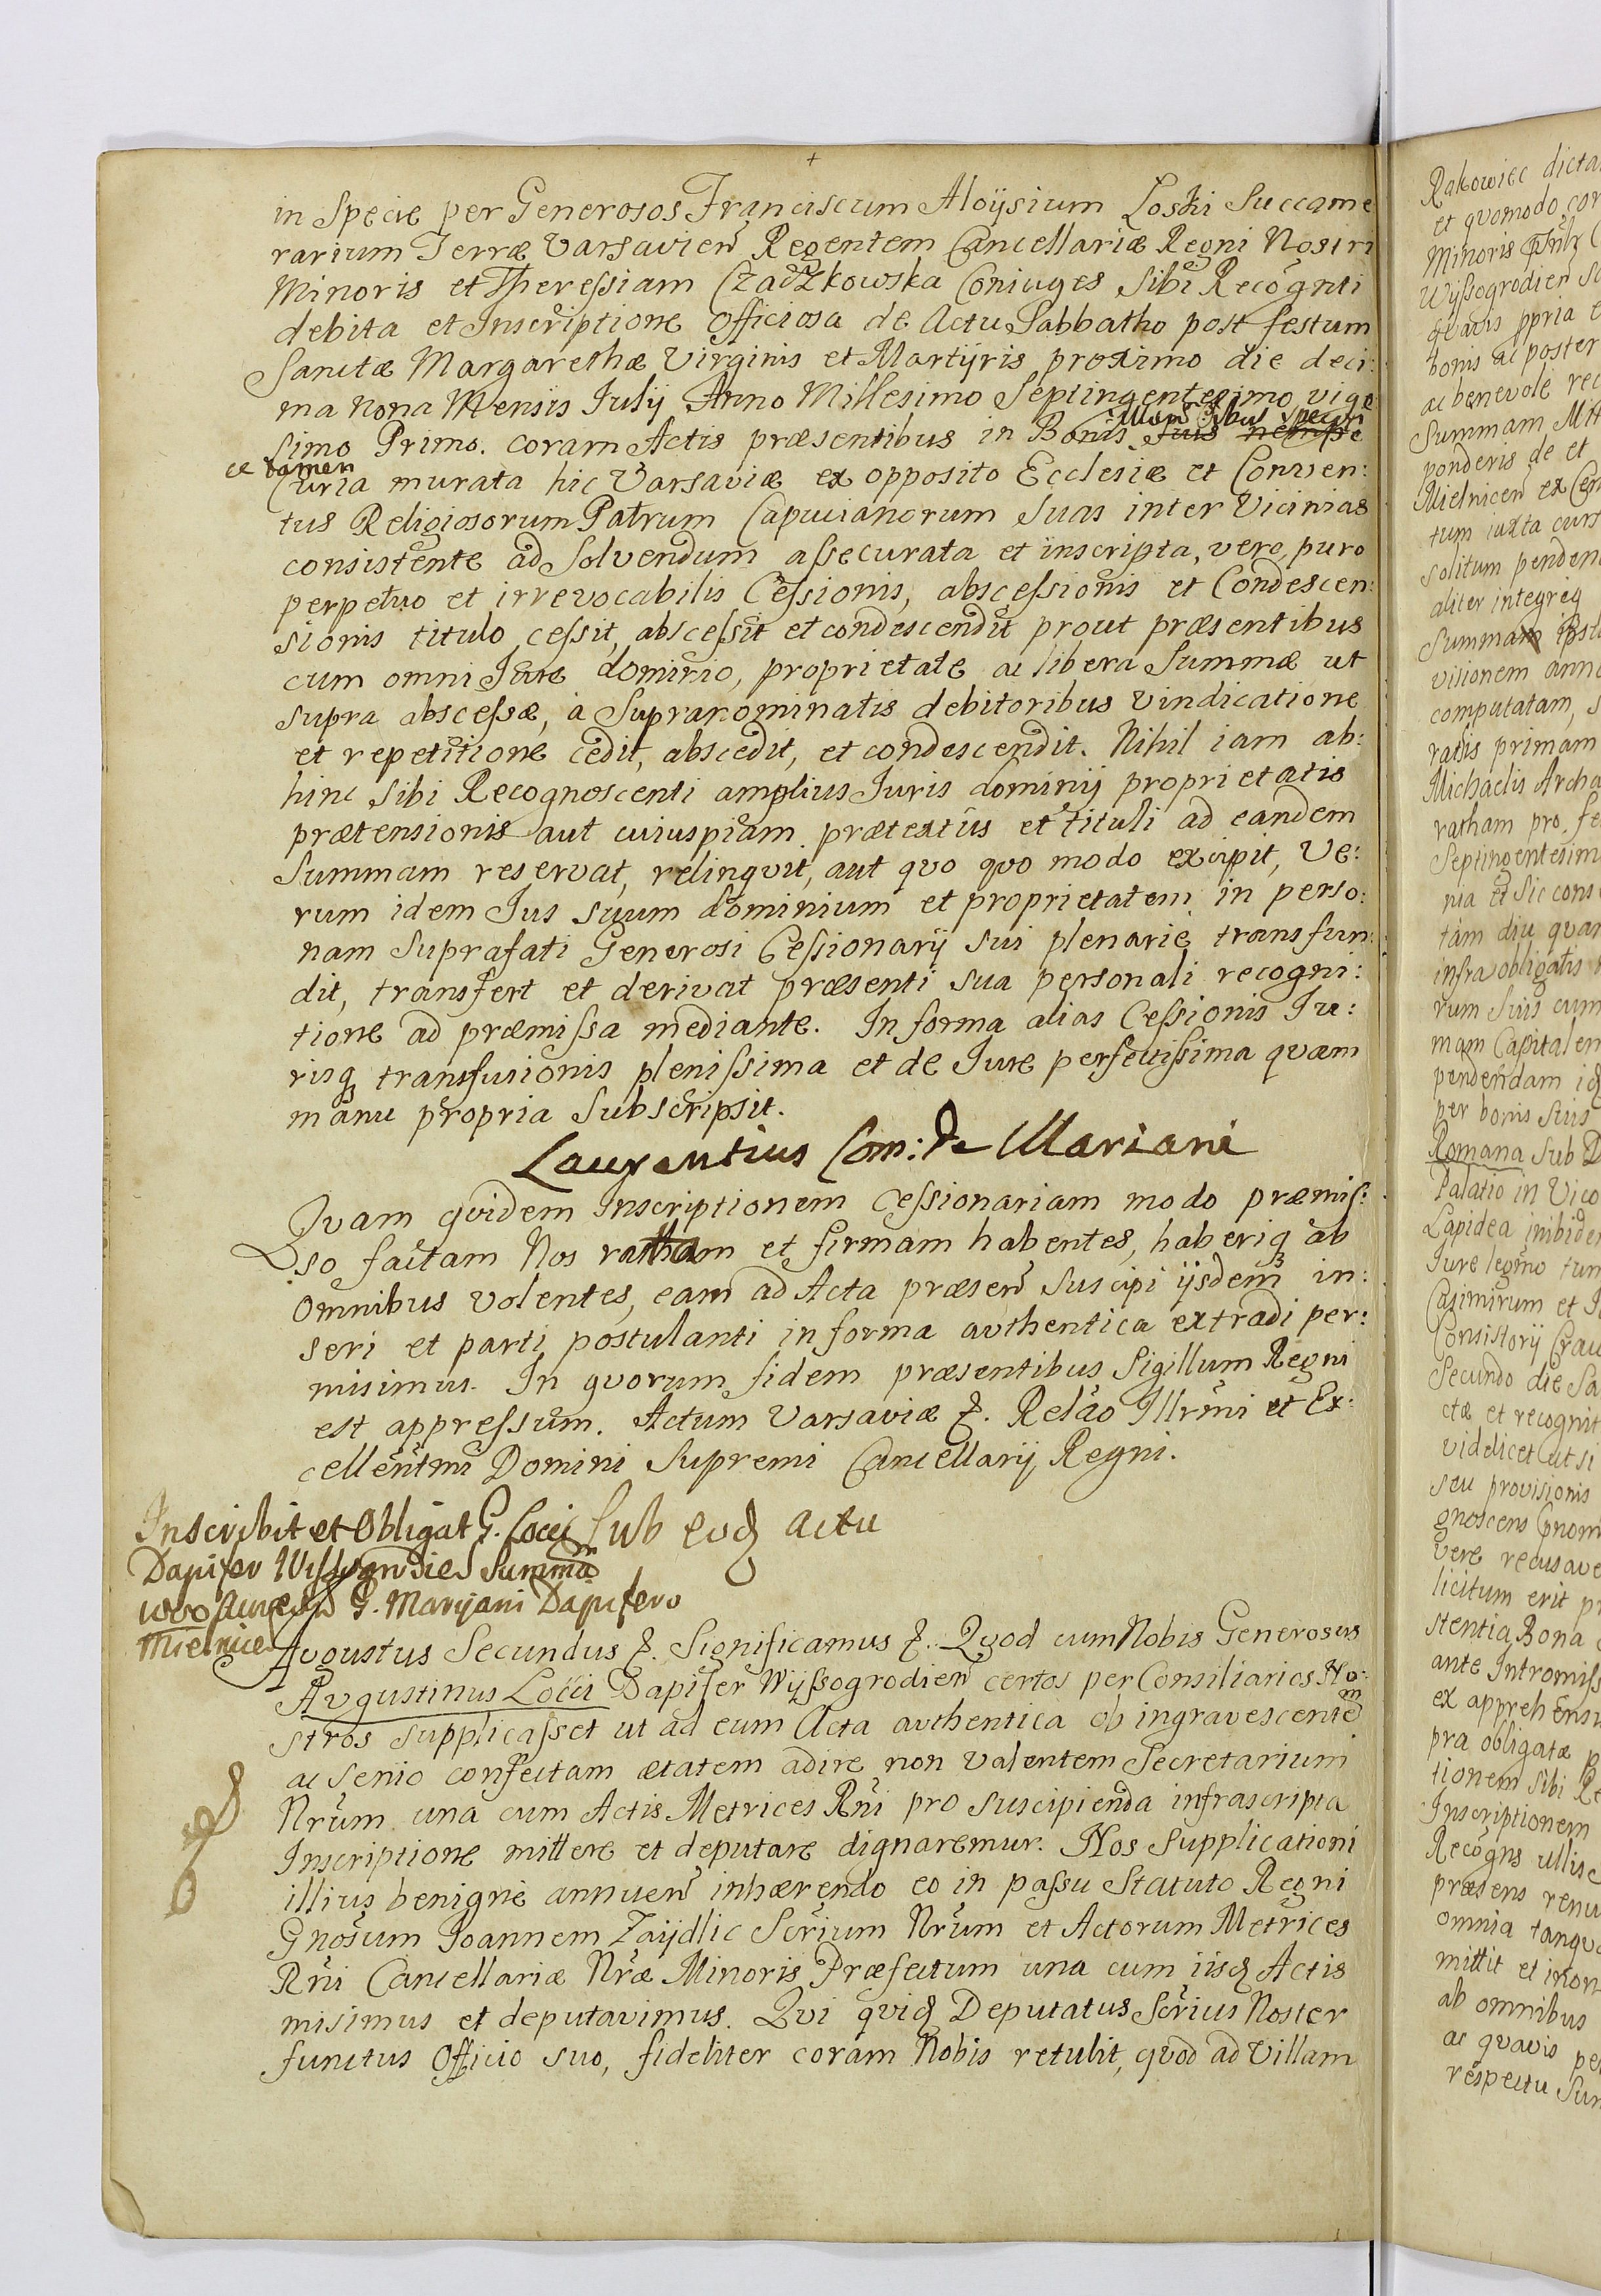 in Specie per Generosos Franciscum Aloijsium Loski Succame
rarium Terræ Varsavien̄ Regentem Cancellariæ Regni Nostri
Minoris et Theressiam Czadzkowska Coniuges Sibi Recognti
debita et Inscriptione Officiosa de Actu Sabbatho post festum
Sanctæ Margarethæ Virginis et Martijris proximo die deci:
ma nona Mensis Julij Anno Millesimo Septingentesimo vige
simo Primo. coram Actis præsentibus in Bonis suis nempe
ce tamen
Curia murata hic Varsaviæ ex opposito Ecclesiæ et Conven:
tus Religiosorum Patrum Capucianorum Suas inter Vicinias
consistente ad Solvendum assecurata et inscripta, vero, puro
perpetuo et irrevocabilis Cessionis, abscessionis et Condescen:
sionis titulo cessit, abscessit et condescendit prout præsentibus
cum omni Jure dominio, proprietate ac libera Summæ ut
supra abscessæ, à Supranominatis debitoribus vindicatione
et repetitione cedit, abscedit, et condescendit. Nihil iam ab:
hinc Sibi Recognoscenti amplius Juris dominij proprietatis
prætensionis aut cuiuspiam prætextus et tituli ad eandem
Summam reservat, relinqvit, aut qvo qvo modo excipit, Ve:
rum idem Jus suum dominium et proprietatem in perso:
nam Suprafati Generosi Cessionarij sui plenarie transfun:
dit, transfert et derivat præsenti sua personali recogni:
tione ad præmissa mediante. In forma alias Cessionis Ju:
risq transfusionis plenissima et de Jure perfectissima qvam
manu propria Subscripsit.
Laurentius Com: de Mariani
Qvam qvidem Inscriptionem Cessionariam modo præmis:
so factam Nos ratham et firmam habentes, haberiq ab
omnibus volentes, eam ad Acta præsen̄ suscipi ijsdemq in:
seri et parti postulanti in forma avthentica extradi per:
misimus. In qvorum fidem præsentibus Sigillum Regni
est appressum. Actum Varsaviæ &. Relāo Illrmi et Ex:
cellentmi Domini Supremi Cancellarij Regni.
Inscribit et Obligat G. Locci Sub eod actu
Dapifer Wissogrodien Summā
1000 Aureor G. Marijani Dapifero
Mielnicen
Avgustus Secundus &. Significamus &. Qvod cum Nobis Generosus
Avgustinus Locci Dapifer Wijssogrodien̄ certos per Consiliarios No:
stros supplicasset ut ad eum Acta avthentica ob ingravescentem
ac senio confectam ætatem adire non valentem Secretarium
Nrūm una cum Actis Metrices Rn̄i pro suscipienda infrascripta
Inscriptione mittere et deputare dignaremur. Nos Supplicationi
illius benigne annuen̄ inhærendo eo in passu Statuto Regni
Gnosum Joannem Zaijdlic Scrium Nrūm et Actorum Metrices
Rn̄i Cancellariæ Nr̄æ Minoris Præfectum una cum iisd Actis
misimus et deputavimus. Qvi qvid Deputatus Scrius Noster
functus Officio suo, fideliter coram Nobis retulit, qvod ad Villam
Rakowiec dicta
et qvomodo
Minoris
Wijssogrodien
qvavis ppria
bonis ac poster
ac benevole rec
Summam
ponderis de et
Mielnicen̄ ex
tum iuxta curs
solitum penden
aliter integrè
Summam
visionem ann
computatam, s
rathis primam
Michaelis Archa
ratham pro fe
Septingentesim
nia et sic cons
tam diu qvan
infra obligatis
rum suis cum
mam Capitalem
pendendam
per bonis suis
Romana sub D
Palatio in Vico
Lapidea inibide
Jure legmo tum
Casimirum et
Consistorij Crac
Secundo die Sa
ctæ et recognit
videlicet ut si
seu provisionis
gnoscens
vere recusave
licitum erit pr
stentia Bona
ante Intromiss
ex apprehensi
pra obligatæ p
tionem Sibi Re
Inscriptionem
Recogns ullis
præsens renu
omnia tanqva
mittit et
ab omnibus
ac qvavis pe
respectu Sum